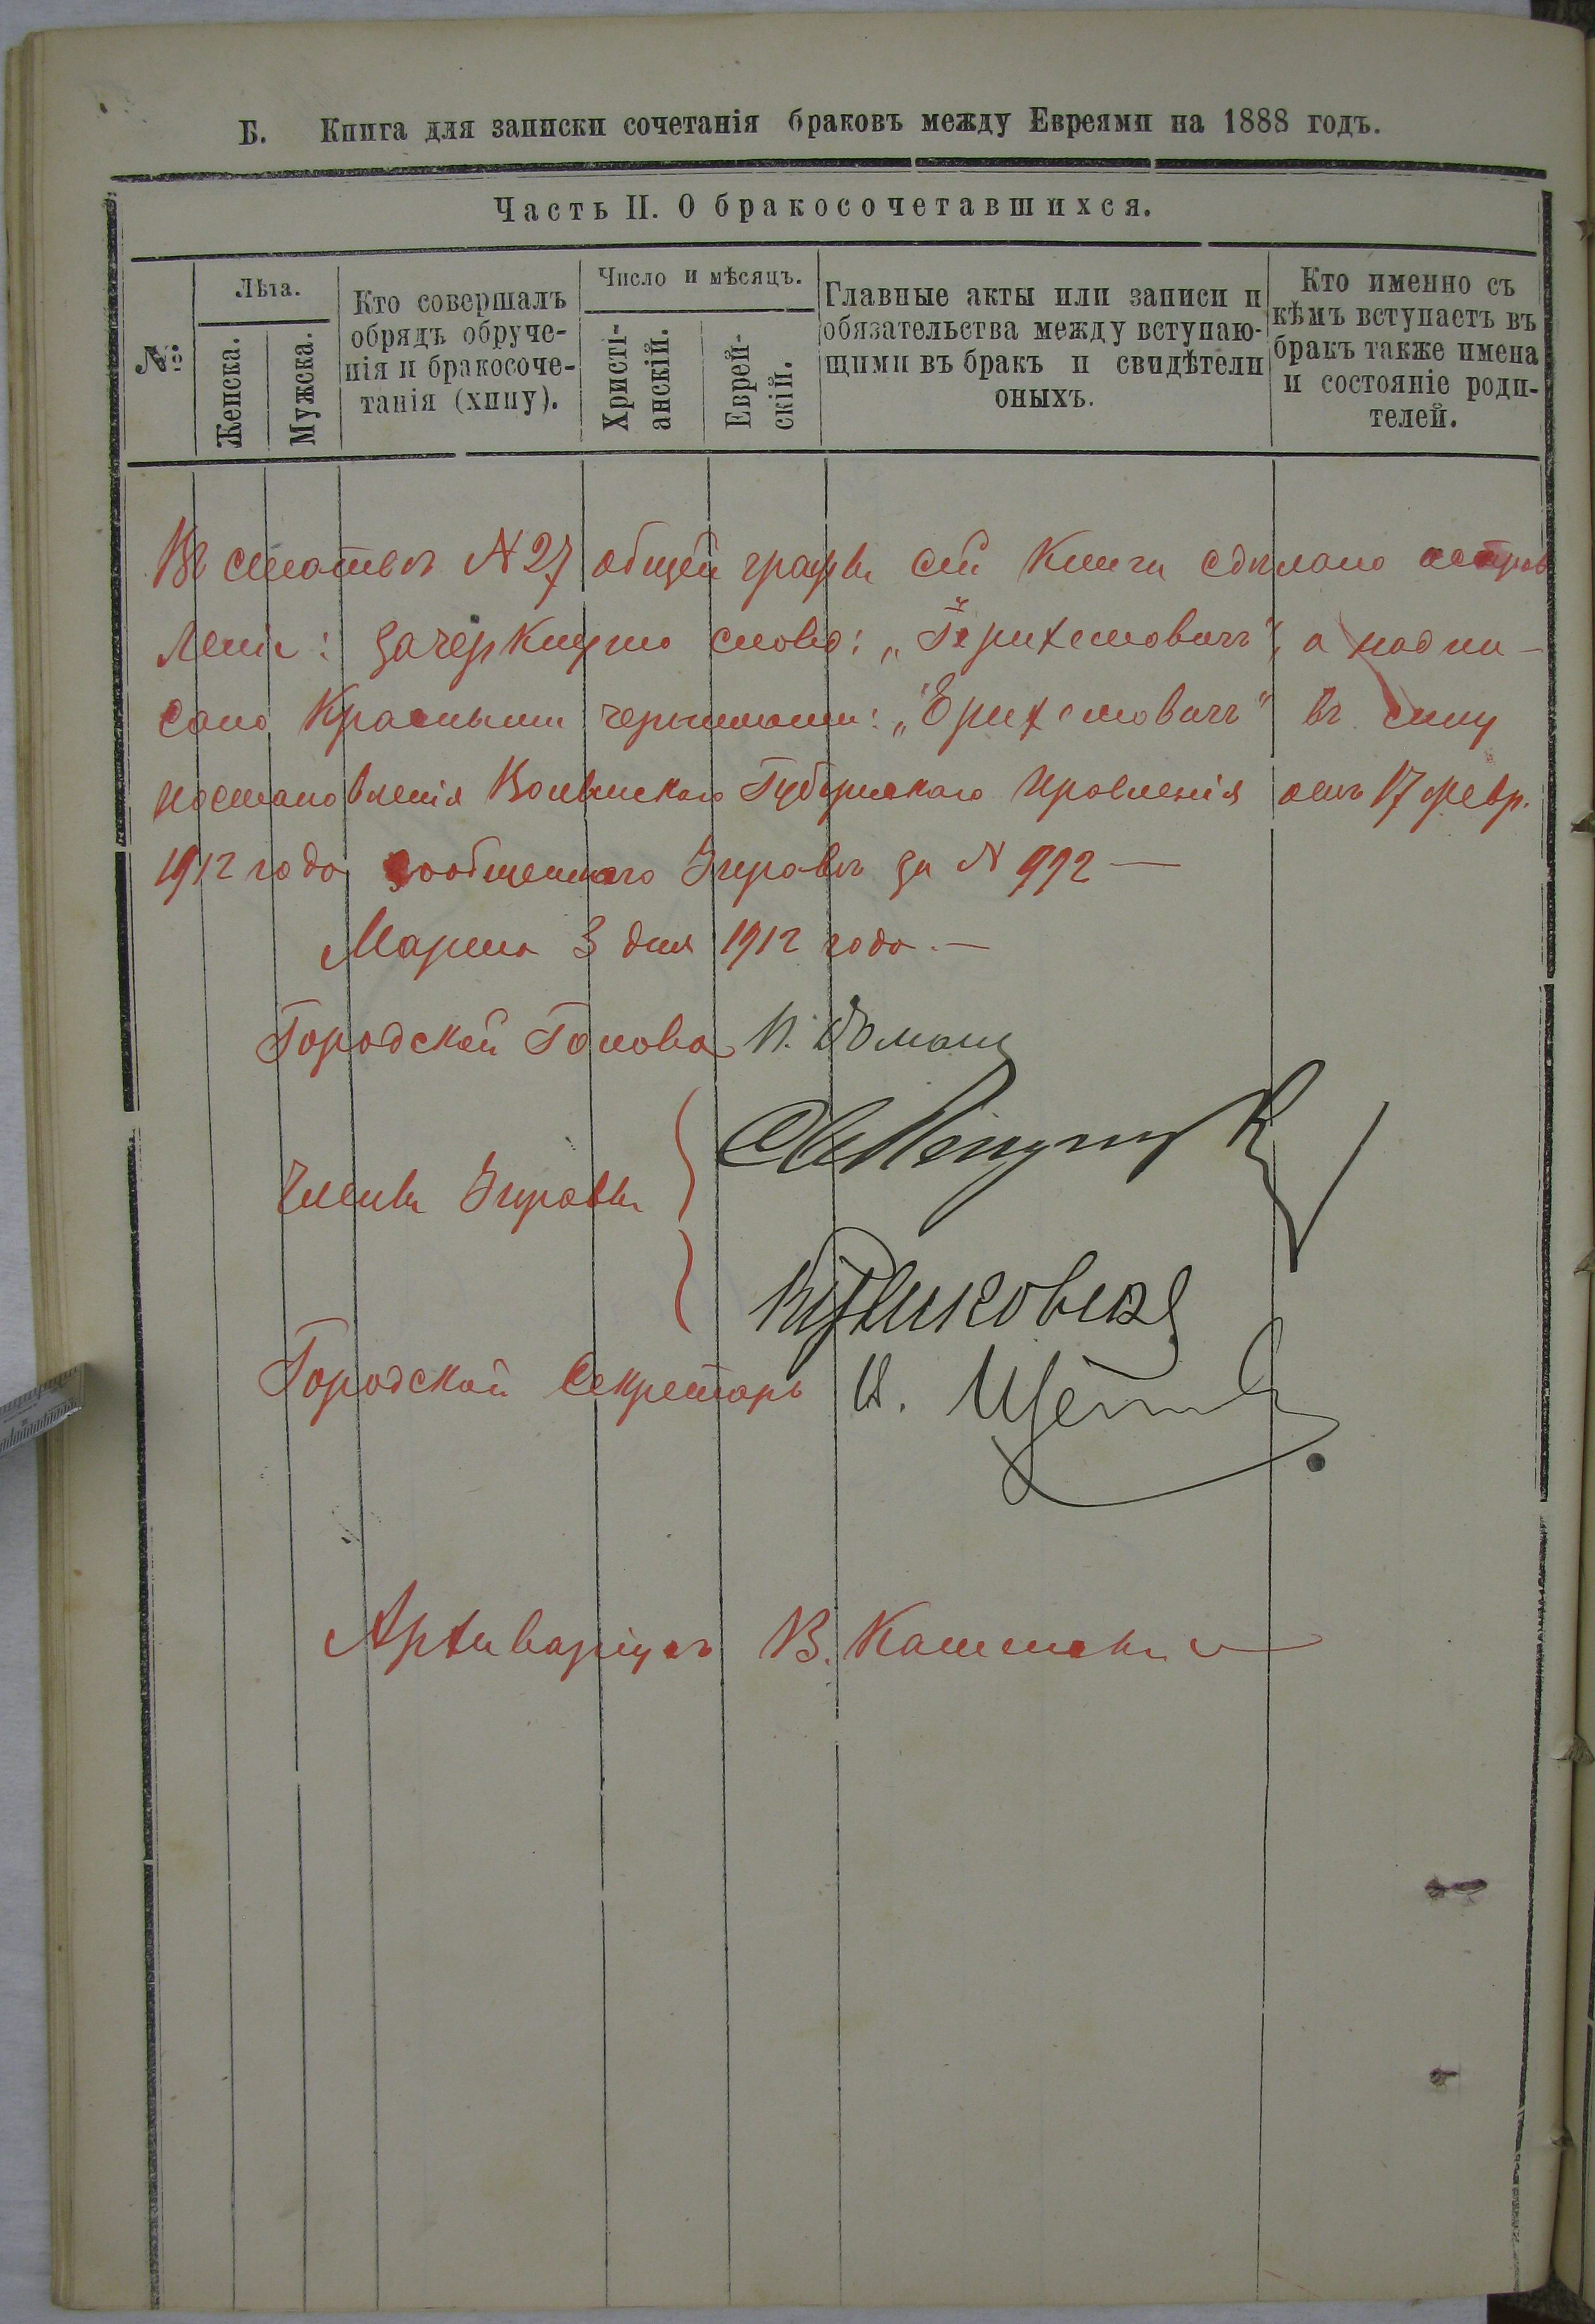 Б. Книга для записки сочетанія браковъ между Евреями на 1888 годъ.
Часть II. О бракосочетавшихся.
№
Лѣта.
Женска.
Мужска.
Кто совершалъ
обрядъ обруче-
нія и бракосоче-
танія (хипу).
Число и мѣсяцъ.
Христі-
анскій.
Еврей-
скій.
Главные акты или записи и
обязательства между вступаю-
щими въ бракъ и свидѣтели
оныхъ.
Кто именно съ
кѣмъ вступаетъ въ
бракъ также имена
и состояніе роди-
телей.
Въ статьѣ N 27 общей графы сей книги сдѣлано исправ
леніе: зачеркнуто слово: „Герихемовичъ", а надпи-
сано красными чернилами: „Ерихемовичъ" въ силу
постановленія Волынскаго Губернскаго Правленія отъ 17 февр.
1912 года сообщеннаго Управѣ за N 992 —
Марта 3 дня 1912 года. —
Городской Голова
Члены Управы
Городской Секретарь
Архиваріусъ В.